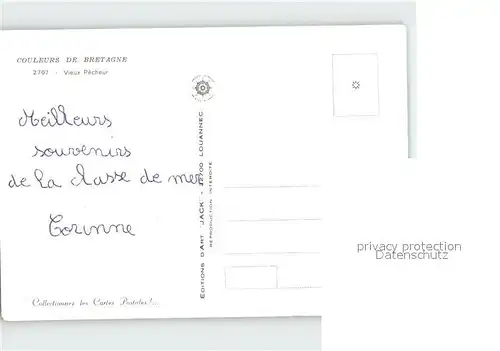 COULEURS DE BRETAGNE
2707 - Vieux Pêcheur
Meilleurs
souvenirs
de la classe de mer
Corinne
EDITIONS D'ART "JACK" - 22700 LOUANNEC
REPRODUCTION INTERDITE
Collectionnez les Cartes Postales!...
privacy protection
Datenschutz